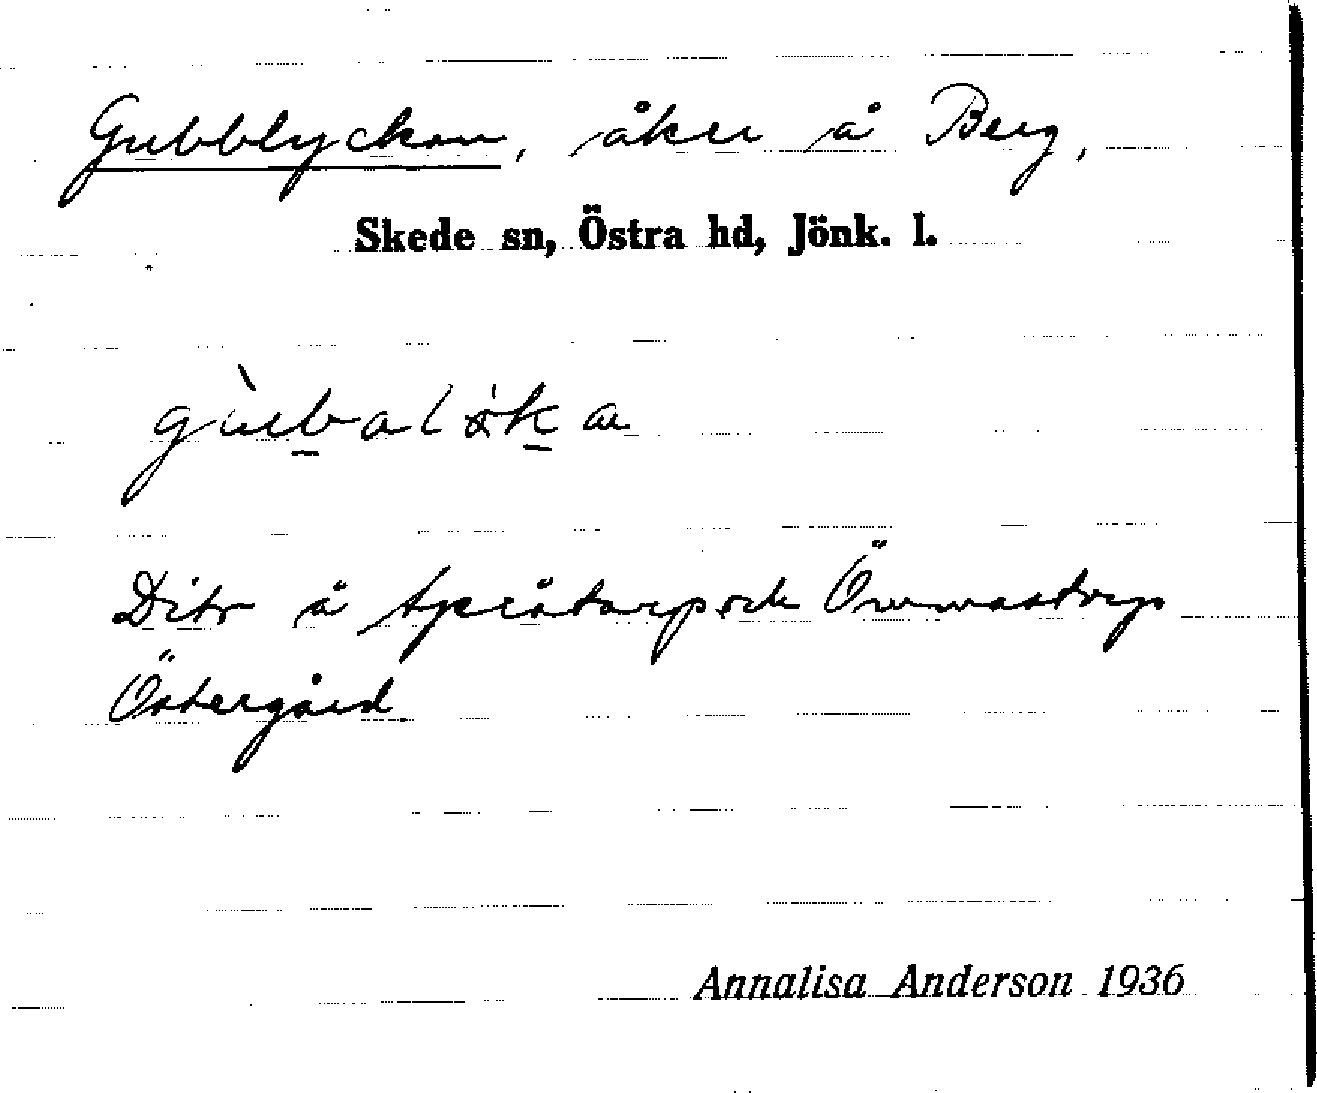 Gubblyckan, åker å Berg,
Skede sn, Östra hd, Jönk. l.
Dito å och
Östergård.
Annalisa Anderson 1936